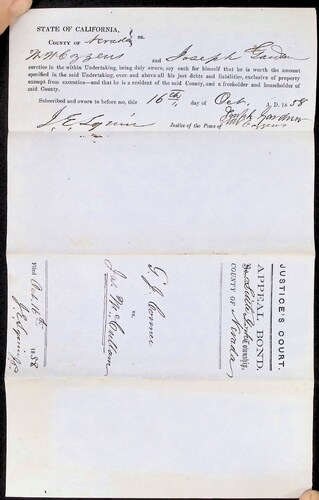 STATE OF CALIFORNIA, } ss.
COUNTY OF Nevada
and Joseph
sureties in the within Undertaking, being duly sworn, say each for himself that he is worth the amount
specified in the said Undertaking, over and above all his just debts and liabilities, exclusive of property
exempt from execution—and that he is a resident of the said County, and a freeholder and householder of
said County.
Subscribed and sworn to before me, this 16th day of Oct. A. D. 1858
Joseph Gardner
J. E. Squire Justice of the Peace
JUSTICE'S COURT.
APPEAL BOND.
Little York Township,
COUNTY OF Nevada
vs.
Jas McCullom
Filed Oct. 16th 1858
J E Squire J.P.